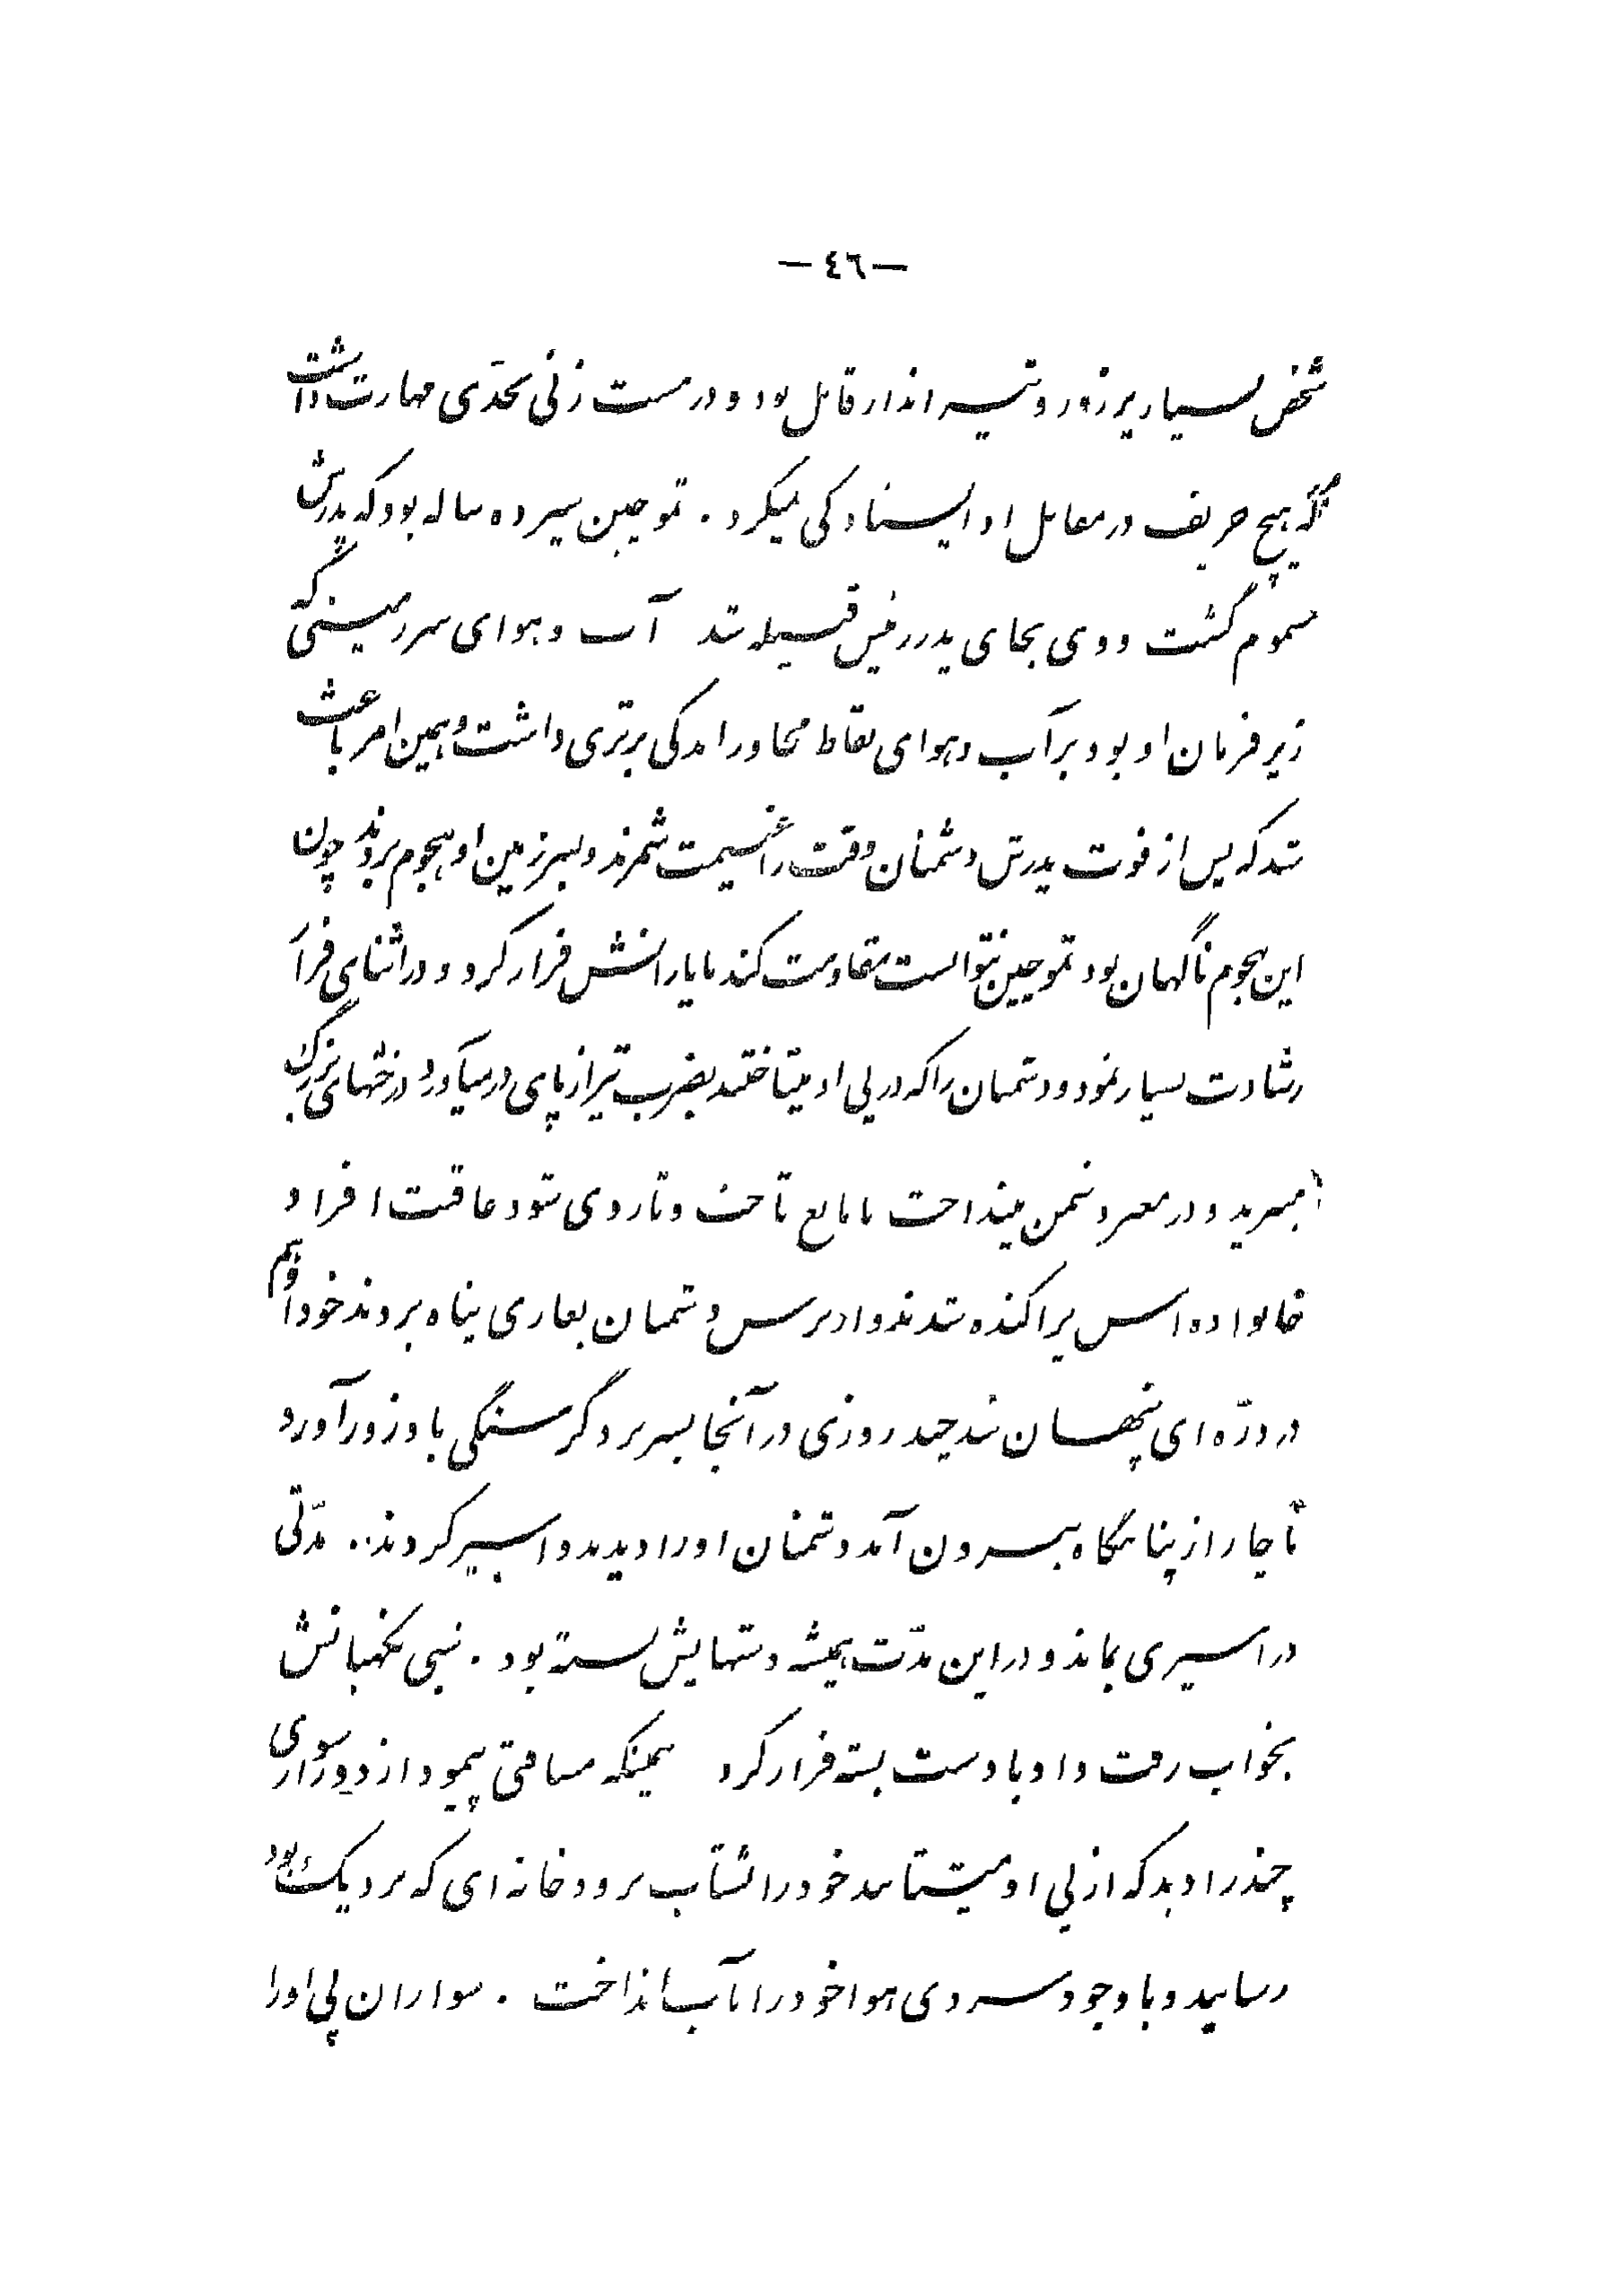 — ٤٦ —
شخص بسیار پر زور و تیر انداز قابل بود و در مشت زنی بحدّی مهارت داشت
که هیچ حریف در مقابل او ایستادگی نمیکرد . تموجین سیزده ساله بود که پدرش
مسموم گشت و وی بجای پدر رئیس قبیله شد آب و هوای سرزمینی که
زیر فرمان او بود بر آب و هوای نقاط مجاور اندکی برتری داشت و همین امر باعث
شد که پس از فوت پدرش دشمنان وقت را غنیمت شمرند و بسرزمین او هجوم بردند چون
این هجوم ناگهان بود تموجین نتوانست مقاومت کند با یارانش فرار کرد و در اثنای فرار
رشادت بسیار نمود و دشمنان را که در پی او میتاختند بضرب تیر از پای درمیآورد درختهای بزرگ
میبرید و در معبر دشمن مینداخت تا مانع تاخت و تاز وی شود عاقبت افراد
خانواده اش پراکنده شدند و از ترس دشمنان بغاری پناه بردند خود او هم
در درّه ای پنهان شد چند روزی در آنجا بسر برد گرسنگی باو زور آورد
ناچار از پناهگاه بیرون آمد دشمنان او را دیدند و اسیر کردند .. مدّتی
در اسیری بماند و در این مدّت همیشه دستهایش بسته بود . شبی نگهبانش
بخواب رفت و او با دست بسته فرار کرد همینکه مسافتی پیمود از دور سواری
چند را دید که از پی او میشتابند خود را بشتاب برودخانه ای که نزدیک بود
رسانید و با وجود سردی هوا خود را بآب انداخت . سواران پی او را